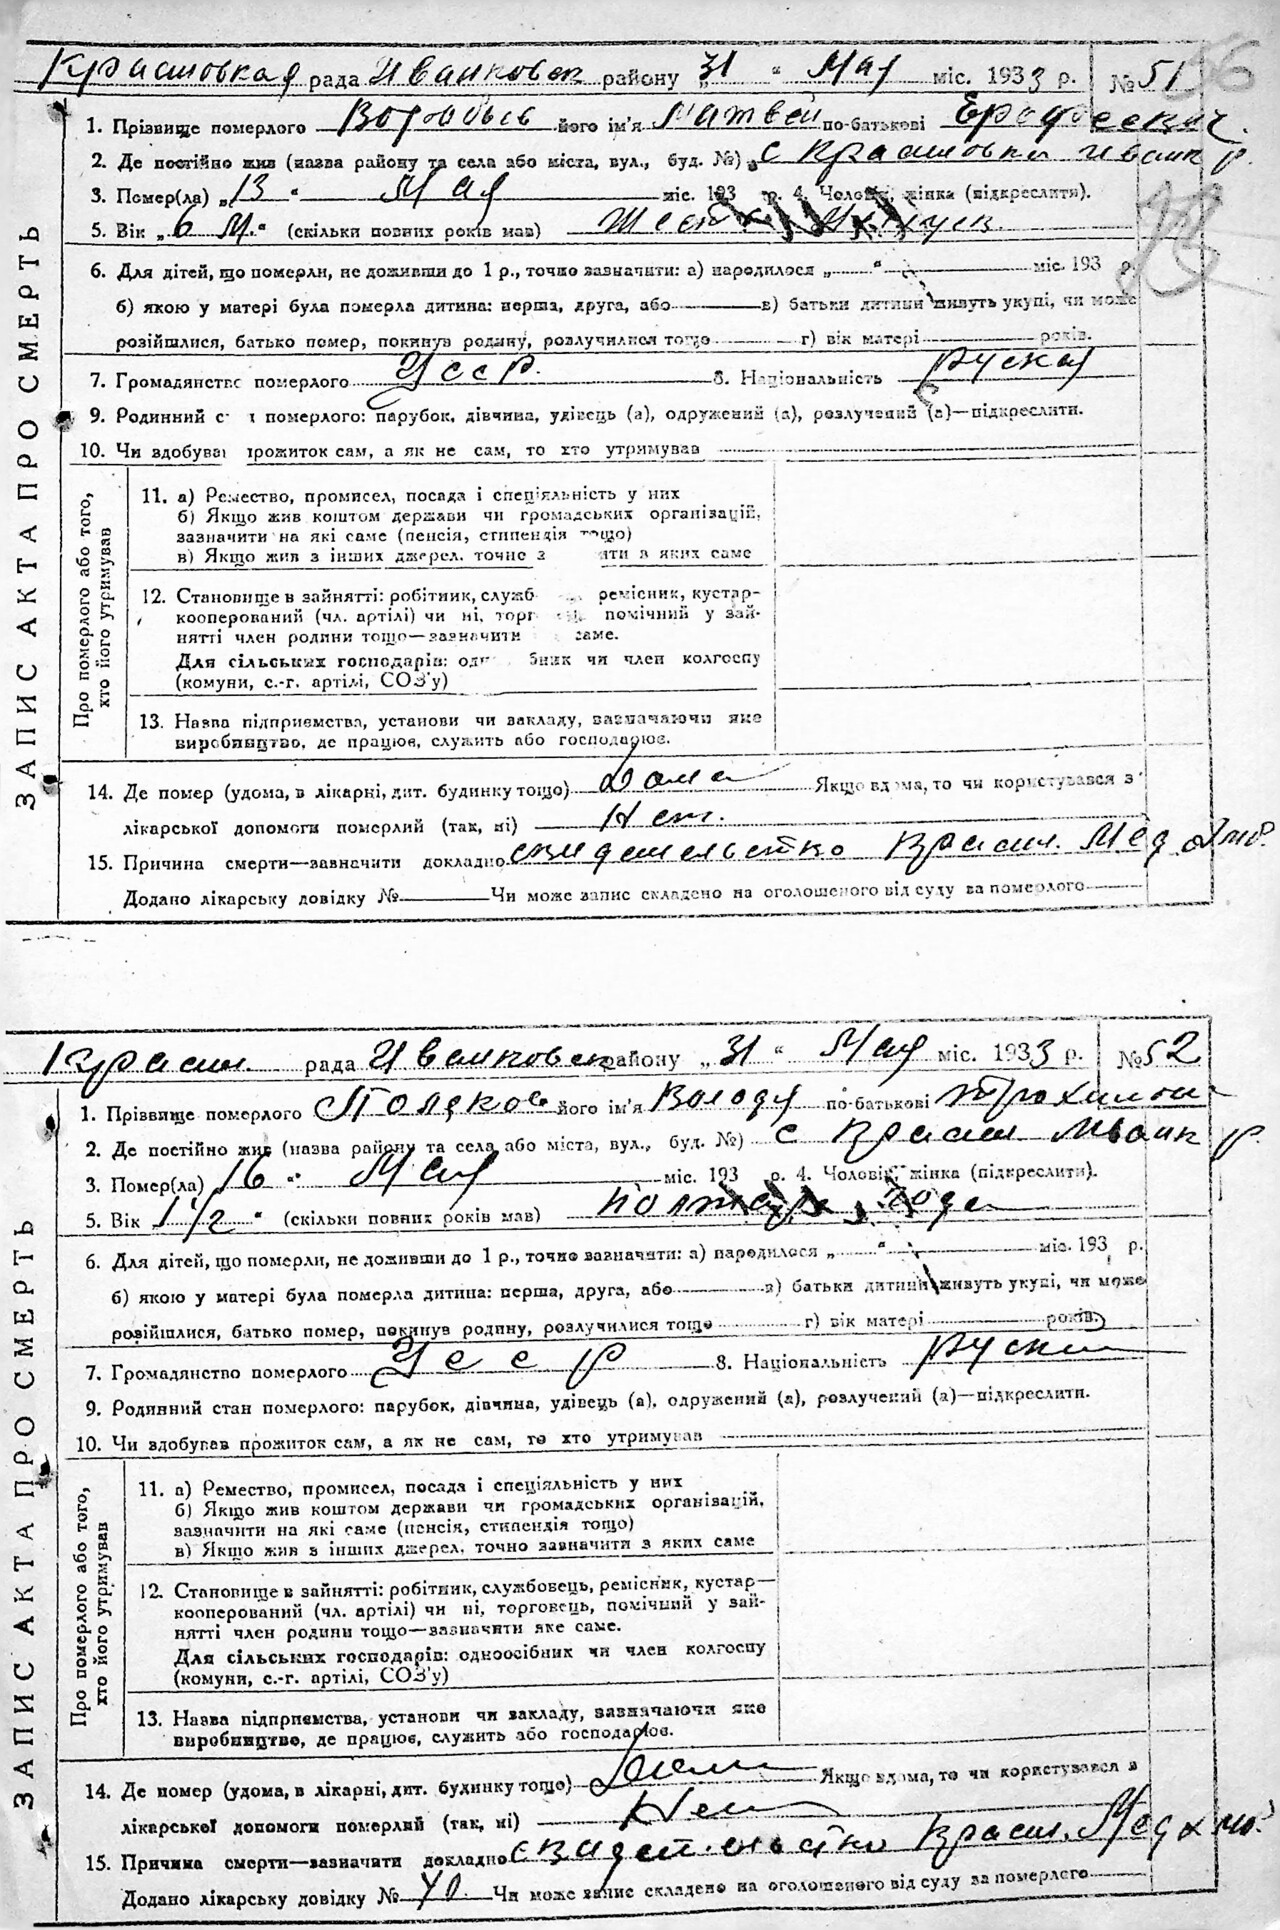 Крашовкая рада Иванковск району „31 “ Мая міс. 1933 р. № 51
56
1. Прізвище померлого Воробьев його ім'я Матвей по-батькові Ерофеевич
2. Де постійно жив (назва району та села або міста, вул., буд. №) „с
3. Помер(ла) „13 “ Мая міс. 193 р. 4. Чоловік, жінка (підкреслити).
5. Вік „6 М.“ (скільки повних років мав)
6. Для дітей, що померли, не доживши до 1 р., точно зазначити: а) народилося „ “ міс. 193 р.
б) якою у матері була померла дитина: перша, друга, або в) батьки дитини живуть укупі, чи може
розійшлися, батько помер, покинув родину, розлучилися тощо г) вік матері років.
7. Громадянство померлого Усср. 8. Національність Руская
9. Родинний с н померлого: парубок, дівчина, удівець (а), одружений (а), розлучений (а)—підкреслити.
10. Чи здобував прожиток сам, а як не сам, то хто утримував
ЗАПИС АКТА ПРО СМЕРТЬ
Про померлого або того, хто його утримував
11. а) Ремество, промисел, посада і спеціяльність у них
б) Якщо жив коштом держави чи громадських організацій,
зазначити на які саме (пенсія, стипендія тощо)
в) Якщо жив з інших джерел, точно з ити з яких саме
12. Становище в зайнятті: робітник, служб ремісник, кустар-
кооперований (чл. артілі) чи ні, торг помічний у зай-
нятті член родини тощо—зазначити саме.
Для сільських господарів: одн бник чи член колгоспу
(комуни, с.-г. артілі, СОЗ'у)
13. Назва підприємства, установи чи закладу, зазначаючи яке
виробництво, де працює, служить або господарює.
14. Де помер (удома, в лікарні, дит. будинку тощо) Дома Якщо вдома, то чи користувався з
лікарської допомоги померлий (так, ні) Нет.
15. Причина смерти—зазначити докладно свидетельство Красн. Мед
Додано лікарську довідку № Чи може запис складено на оголошеного від суду за померлого
Красн. рада Иванковск району „31 “ Мая міс. 1933 р. № 52
1. Прізвище померлого Поляков його ім'я Володя по-батькові
2. Де постійно жив (назва району та села або міста, вул., буд. №) с Красн. Иванк р.
3. Помер(ла) 16 “ Мая міс. 193 р. 4. Чоловік, жінка (підкреслити).
5. Вік 1 1/2 “ (скільки повних років мав) Полтора года
6. Для дітей, що померли, не доживши до 1 р., точно зазначити: а) народилося „ “ міс. 193 р.
б) якою у матері була померла дитина: перша, друга, або в) батьки дитини живуть укупі, чи може
розійшлися, батько помер, покинув родину, розлучилися тощо г) вік матері років.
7. Громадянство померлого Усср 8. Національність
9. Родинний стан померлого: парубок, дівчина, удівець (а), одружений (а), розлучений (а)—підкреслити.
10. Чи здобував прожиток сам, а як не сам, то хто утримував
ЗАПИС АКТА ПРО СМЕРТЬ
Про померлого або того, хто його утримував
11. а) Ремество, промисел, посада і спеціяльність у них
б) Якщо жив коштом держави чи громадських організацій,
зазначити на які саме (пенсія, стипендія тощо)
в) Якщо жив з інших джерел, точно зазначити з яких саме
12. Становище в зайнятті: робітник, службовець, ремісник, кустар—
кооперований (чл. артілі) чи ні, торговець, помічний у зай-
нятті член родини тощо—зазначити яке саме.
Для сільських господарів: одноосібник чи член колгоспу
(комуни, с.-г. артілі, СОЗ'у)
13. Назва підприємства, установи чи закладу, зазначаючи яке
виробництво, де працює, служить або господарює.
14. Де помер (удома, в лікарні, дит. будинку тощо) Дома Якщо вдома, то чи користувався з
лікарської допомоги померлий (так, ні) Нет
15. Причина смерти—зазначити докладно свидетельство Красн. Мед
Додано лікарську довідку № Чи може запис складено на оголошеного від суду за померлого